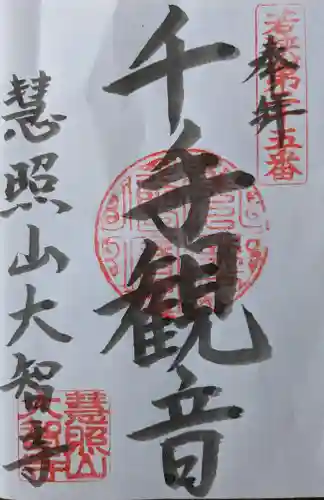 奉拝
若狭第二五番
千手観音
慧照山大智寺
慧照山